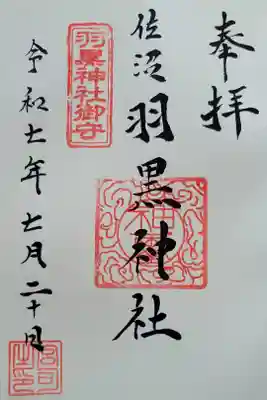 奉拝
佐沼羽黒神社
羽黒神社御守
令和七年七月二十日